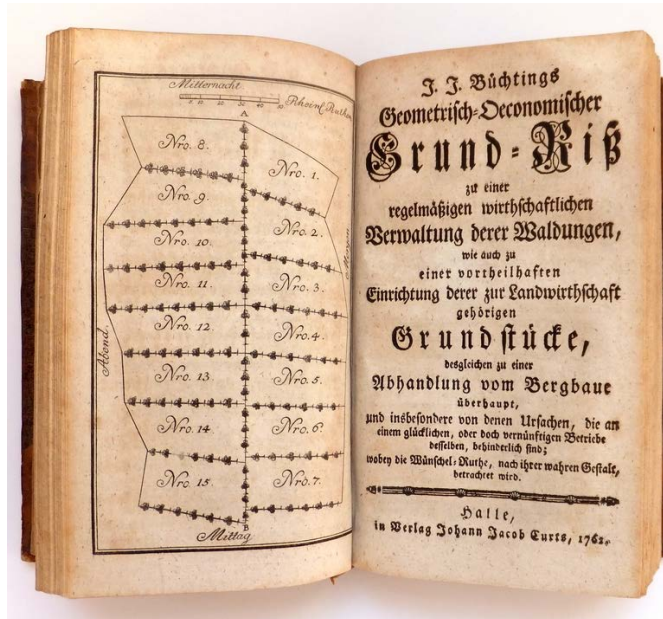 Mitternacht
10 20 30 40 50 Rheinl. Ruthen
A
Nro. 8.
Nro. 1.
Nro. 9.
Nro. 2.
Morgen
Nro. 10.
Nro. 11.
Nro. 3.
Abend.
Nro. 12
Nro. 4.
Nro. 13.
Nro. 5.
Nro. 14
Nro. 6.
Nro. 15.
Nro. 7.
B
Mittag
J. J. Büchtings
Geometrisch-Oeconomischer
Grund-Riß
zu einer
regelmäßigen wirthschaftlichen
Verwaltung derer Waldungen,
wie auch zu
einer vortheilhaften
Einrichtung derer zur Landwirthschaft
gehörigen
Grundstücke,
desgleichen zu einer
Abhandlung vom Bergbaue
überhaupt,
und insbesondere von denen Ursachen, die an
einem glücklichen, oder doch vernünftigen Betriebe
desselben, behinderlich sind;
wobey die Wünschel-Ruthe, nach ihrer wahren Gestalt,
betrachtet wird.
Halle,
in Verlag Johann Jacob Curts, 1762.